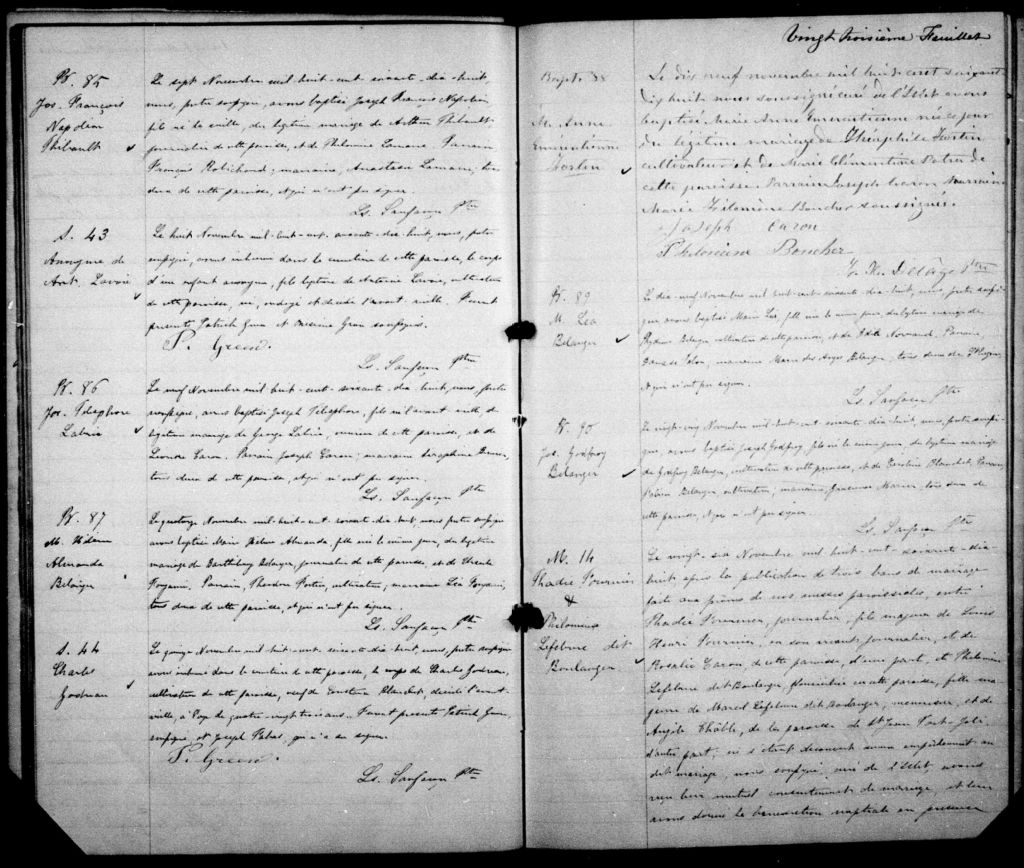 B. 85
Jos. François
Napoléon
Thibault
Le sept Novembre mil huit-cent soixante-dix-huit,
nous, prêtre soussigné, avons baptisé Joseph François Napoléon
fils né la veille, du légitime mariage de Arthur Thibault
journalier de cette paroisse, et de Philomène Lemieux. Parrain
François Robichaud; marraine, Anastasie Lemieux, tous
deux de cette paroisse, et qui n'ont pu signer.
Ls. Sanfaçon Ptre
S. 43
Anonyme de
Ant. Lavoie
Le huit Novembre mil-huit-cent soixante-dix-huit, nous, prêtre
soussigné, avons inhumé dans le cimetière de cette paroisse, le corps
d'un enfant anonyme, fils légitime de Antoine Lavoie, cultivateur
de cette paroisse, né, ondoyé et décédé l'avant-veille. Furent
présents Patrick Green et Onésime Green soussignés.
P. Green.
Ls. Sanfaçon Ptre
B. 86
Jos. Télesphore
Labrie
Le neuf Novembre mil huit-cent-soixante-dix-huit, nous, prêtre
soussigné, avons baptisé Joseph Télesphore, fils né l'avant-veille du
légitime mariage de George Labrie, de cette paroisse, et de
Caron. Parrain Joseph Caron; marraine Séraphine
tous deux de cette paroisse, et qui n'ont pu signer.
Ls. Sanfaçon Ptre
B. 87
M.
Almanda
Belanger
Le quatorze Novembre mil-huit-cent soixante-dix-huit, nous prêtre soussigné
avons baptisé Marie Almanda, fille née le même jour, du légitime
mariage de Barthélemy Belanger, journalier de cette paroisse, et de
Parrain, Théodore Fortin, cultivateur, marraine Léa
tous deux de cette paroisse, et qui n'ont pu signer.
Ls. Sanfaçon Ptre
S. 44
Charles
Godreau
Le quinze Novembre mil huit-cent-soixante-dix-huit, nous, prêtre soussigné
avons inhumé dans le cimetière de cette paroisse, le corps de Charles Godreau,
cultivateur de cette paroisse, veuf de Blanchet, décédé l'avant-
veille, à l'âge de quatre-vingt-trois ans. Furent présents Patrick Green,
soussigné, et Joseph qui n'a su signer.
P. Green.
Ls. Sanfaçon Ptre
Vingt troisième Feuillet
Bapte 88
M. Anne
Emérentienne
Fortin
Le dix neuf novembre mil huit cent soixante
dix huit nous soussigné curé de l'Islet avons
baptisé Marie Anne Emérentienne née ce jour
du légitime mariage de Théophile Fortin
cultivateur et de Marie Clémentine Potvin de
cette paroisse. Parrain Joseph Caron Marraine
Marie Philomène Boucher soussignés.
Joseph Caron
Philomène Boucher
Delâge Ptre
B. 89
M. Léa
Belanger
Le dix-neuf Novembre mil huit-cent-soixante-dix-huit, nous, prêtre soussi-
gné, avons baptisé Marie Léa, fille née le même jour, du légitime mariage de
Belanger, cultivateur de cette paroisse, et de Normand. Parrain,
marraine Marie des Anges Belanger, tous deux de St Eugène
et qui n'ont pu signer.
Ls. Sanfaçon Ptre
B. 90
Jos. Godfroy
Belanger
Le vingt-cinq Novembre mil-huit-cent soixante-dix-huit, nous, prêtre soussi-
gné, avons baptisé Joseph Godfroy, fils né le même jour, du légitime mariage
de Godfroy Belanger, cultivateur de cette paroisse, et de Caroline Blanchet. Parrain,
Belanger cultivateur; marraine, Mercier, tous deux de
cette paroisse, et qui n'ont pu signer.
Ls. Sanfaçon Ptre
M. 14
Thadée Fournier
&
Philomène
Lefebvre dit
Boulanger
Le vingt-six Novembre mil huit-cent-soixante-dix-
huit après la publication de trois bans de mariage
faite aux prônes de nos messes paroissiales, entre
Thadée Fournier, journalier, fils majeur de Louis
Henri Fournier, en son vivant, journalier, et de
Rosalie Caron, de cette paroisse, d'une part, et Philomène
Lefebvre dit Boulanger, domiciliée en cette paroisse, fille ma-
jeure de Marcel Lefebvre dit Boulanger, menuisier, et de
Angèle Thible, de la paroisse de St Jean Port-Joli,
d'autre part, ne s'étant découvert aucun empêchement au
dit mariage, nous soussigné, curé de l'Islet, avons
reçu leur mutuel consentement de mariage, et leur
avons donné la bénédiction nuptiale en présence